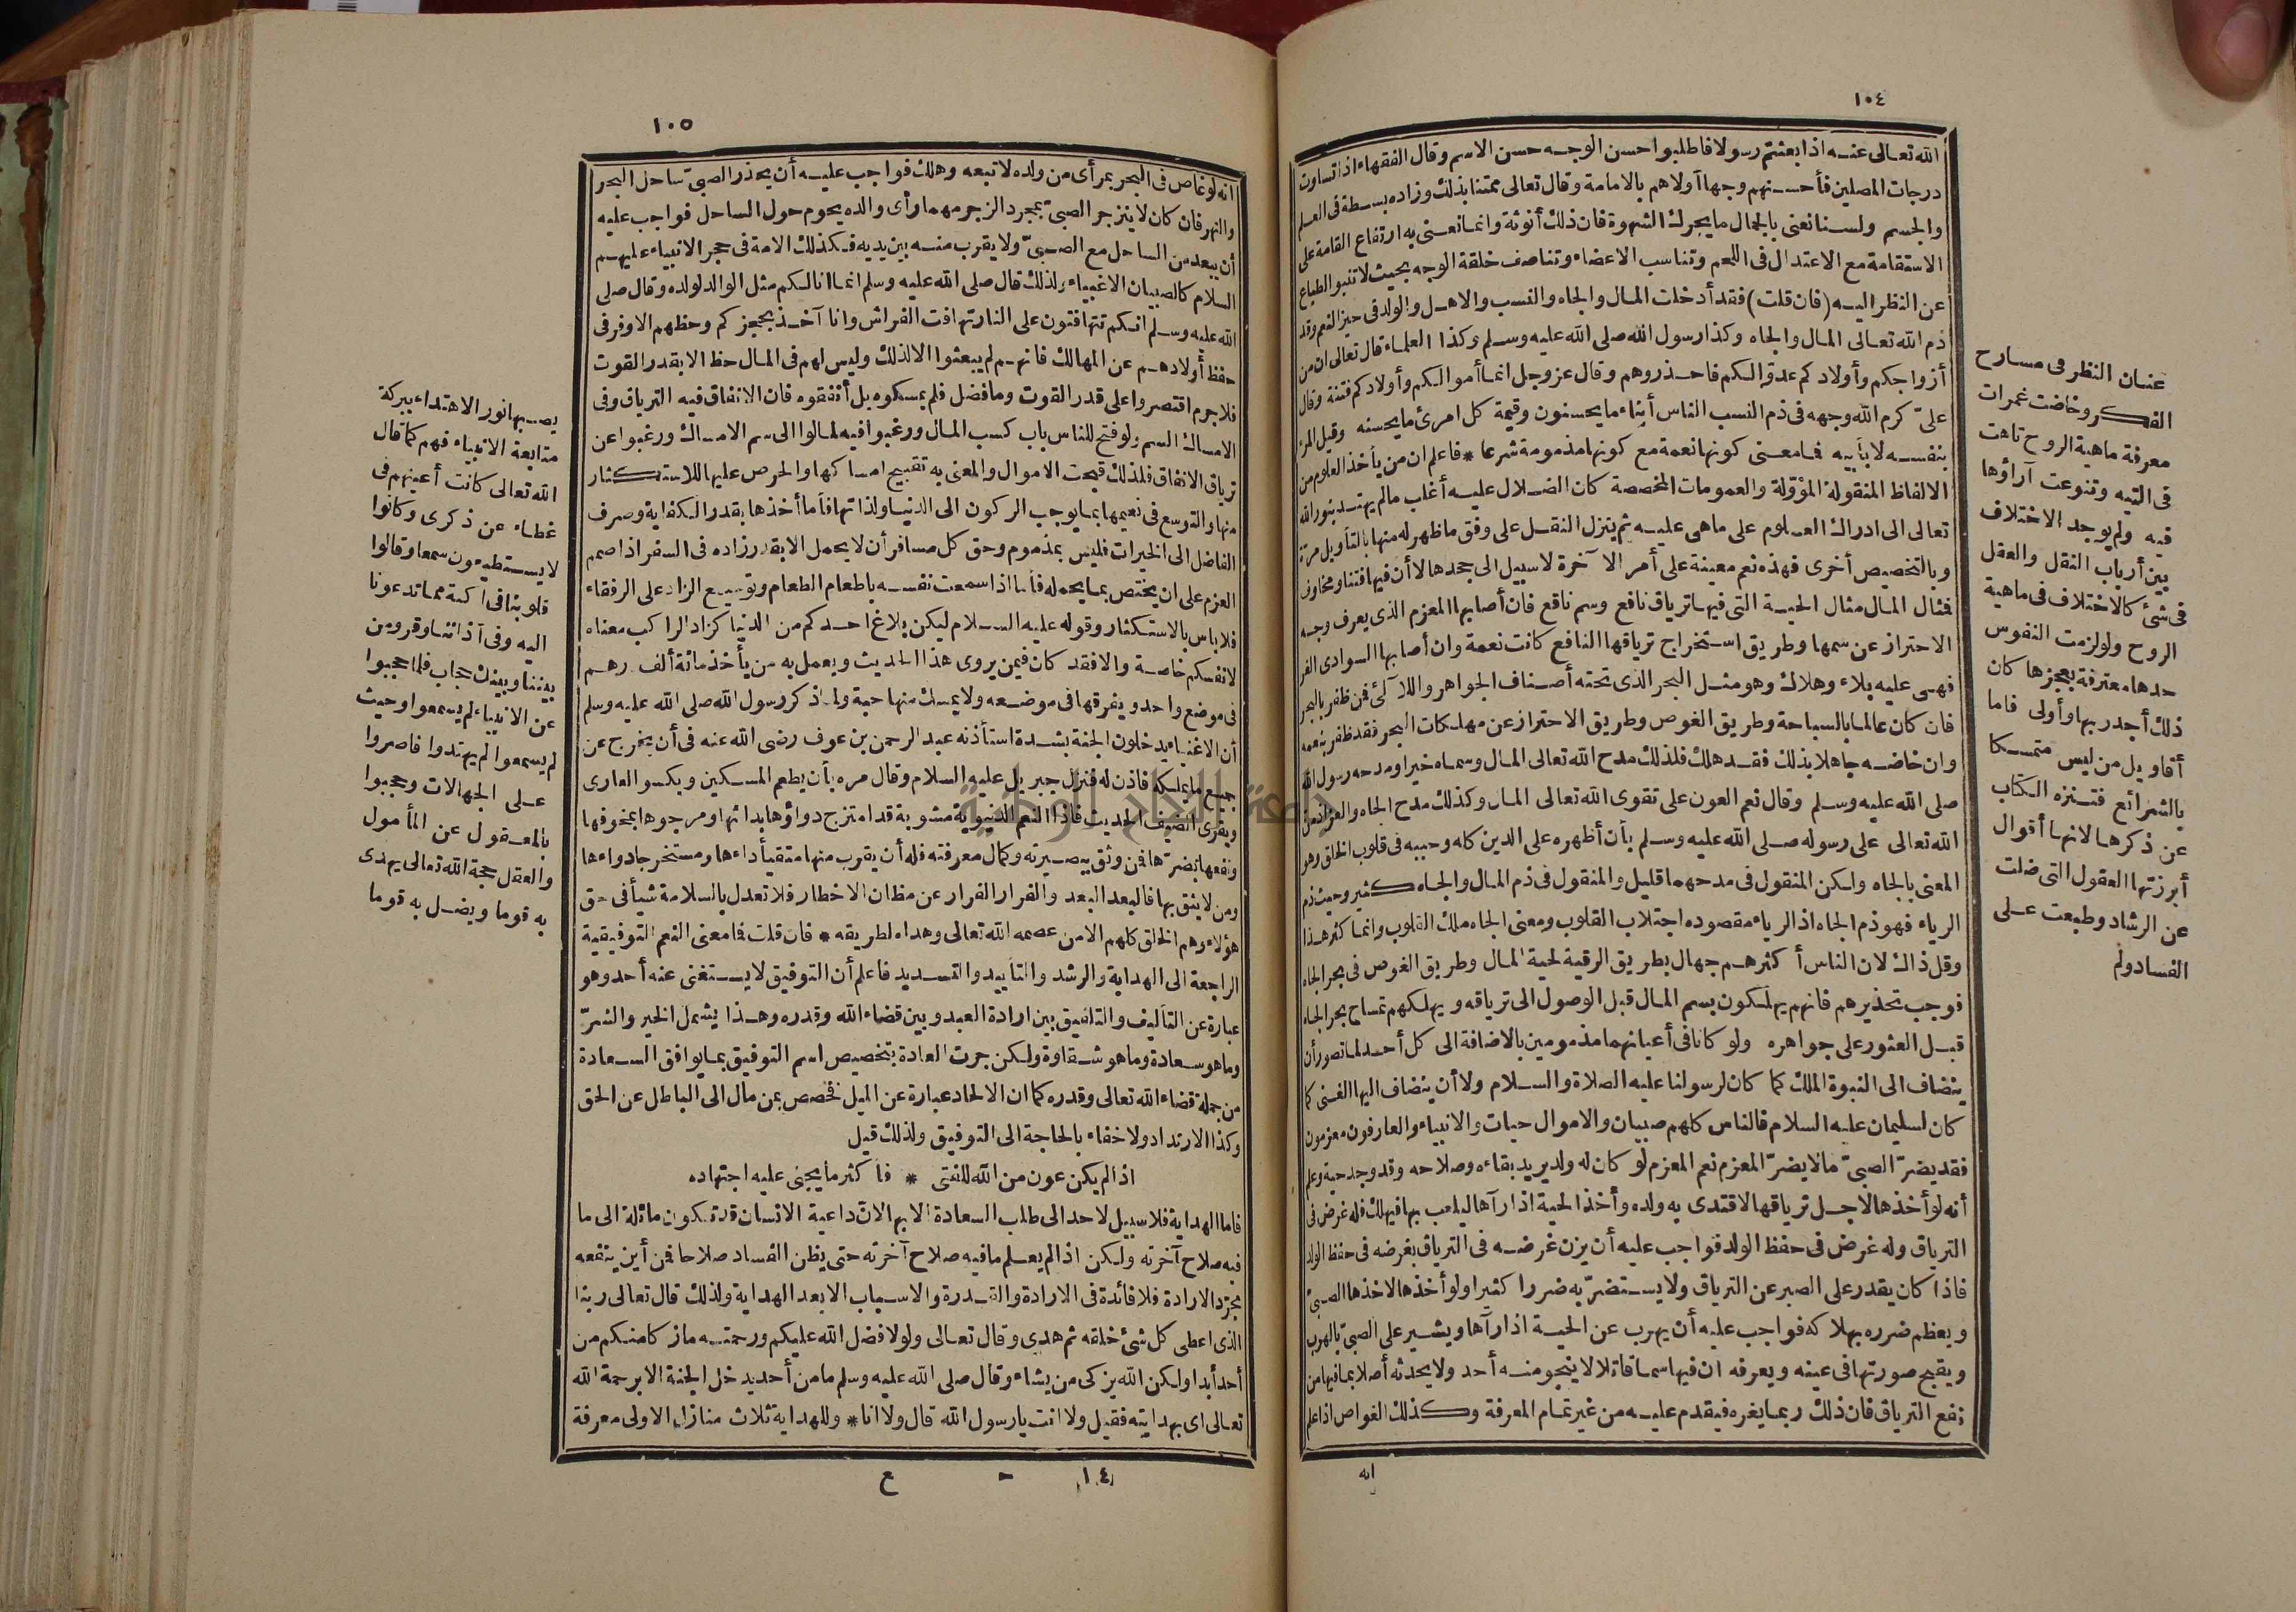 ١٠٤
الله تعالى عنه اذا بعثتم رسولا فاطلبوا حسن الوجه حسن الاسم وقال الفقهاء اذا تساوت
درجات المصلين فأحسنهم وجها أولاهم بالامامة وقال تعالى ممتنا بذلك وزاده بسطة فى العلم
والجسم ولسنا نعنى بالجمال ما يحرك الشهوة فان ذلك أنوثة وانما نعنى به ارتفاع القامة على
الاستقامة مع الاعتدال فى اللحم وتناسب الاعضاء وتناصف خلقة الوجه بحيث لا تنبو الطباع
عن النظر اليه (فان قلت) فقد أدخلت المال والجاه والنسب والاهل والولد فى حيز النعم وقد
ذم الله تعالى المال والجاه وكذا رسول الله صلى الله عليه وسلم وكذا العلماء قال تعالى ان من
أزواجكم وأولادكم عدوّا لكم فاحذروهم وقال عز وجل انما أموالكم وأولادكم فتنة وقال
علىّ كرم الله وجهه فى ذم النسب الناس أبناء ما يحسنون وقيمة كل امرئ ما يحسنه وقيل المرء
بنفسه لا بأبيه فما معنى كونها نعمة مع كونها مذمومة شرعا * فاعلم ان من يأخذ العلوم من
الالفاظ المنقولة المؤوّلة والعمومات المخصصة كان الضلال عليه أغلب ما لم يهتد بنور الله
تعالى الى ادراك العلوم على ماهى عليه ثم ينزل النقل على وفق ما ظهر له منها بالتأويل مرة
وبالتخصيص أخرى فهذه نعم معينة على أمر الآخرة لا سبيل الى جحدها لا أن فيها فتنا ومخاوف
فمثال المال مثال الحية التى فيها ترياق نافع وسم ناقع فان أصابها المعزم الذى يعرف وجه
الاحتراز عن سمها وطريق استخراج ترياقها النافع كانت نعمة وان أصابها السوادى الغر
فهى عليه بلاء وهلاك وهو مثل البحر الذى تحته أصناف الجواهر واللآلئ فمن ظفر بالبحر
فان كان عالما بالسباحة وطريق الغوص وطريق الاحتراز عن مهلكات البحر فقد ظفر بنعمه
وان خاضه جاهلا بذلك فقد هلك فلذلك مدح الله تعالى المال وسماه خيرا ومدحه رسول الله
صلى الله عليه وسلم وقال نعم العون على تقوى الله تعالى المال وكذلك مدح الجاه والعز اذ من
الله تعالى على رسوله صلى الله عليه وسلم بأن أظهره على الدين كله وحببه فى قلوب الخلق وهو
المعنى بالجاه ولكن المنقول فى مدحهما قليل والمنقول فى ذم المال والجاه كثير وحيث ذم
الرياء فهو ذم الجاه اذ الرياء مقصوده اجتلاب القلوب ومعنى الجاه ملك القلوب وانما كثر هذا
وقل ذاك لان الناس أكثرهم جهال بطريق الرقية لحية المال وطريق الغوص فى بحر الجاه
فوجب تحذيرهم فانهم يهلكون بسم المال قبل الوصول الى ترياقه ويهلكهم تمساح بحر الجاه
قبل العثور على جواهره ولو كانا فى أعيانهما مذمومين بالاضافة الى كل أحد لما تصور أن
ينضاف الى النبوة الملك كما كان لرسولنا عليه الصلاة والسلام ولا أن ينضاف اليها الغنى كما
كان لسليمان عليه السلام فالناس كلهم صبيان والاموال حيات والانبياء والعارفون معزمون
فقد يضرّ الصبىّ ما لا يضرّ المعزم نعم المعزم لو كان له ولد يريد بقاءه وصلاحه وقد وجد حية وعلم
أنه لو أخذها لاجل ترياقها لاقتدى به ولده وأخذ الحية اذا رآها ليلعب بها فيهلك فله غرض فى
الترياق وله غرض فى حفظ الولد فواجب عليه أن يزن غرضه فى الترياق بغرضه فى حفظ الولد
فاذا كان يقدر على الصبر عن الترياق ولا يستضرّ به ضررا كثيرا ولو أخذها لاخذها الصبىّ
ويعظم ضرره بهلاكه فواجب عليه أن يهرب عن الحية اذا رآها ويشير على الصبىّ بالهرب
ويقبح صورتها فى عينه ويعرفه ان فيها سما قاتلا لا ينجو منه أحد ولا يحدثه أصلا بما فيها من
نفع الترياق فان ذلك ربما يغره فيقدم عليه من غير تمام المعرفة وكذلك الغواص اذا علم
انه
عنان النظر فى مسارح
الفكر وخاضت غمرات
معرفة ماهية الروح تاهت
فى التيه وتنوعت آراؤها
فيه ولم يوجد الاختلاف
بين أرباب النقل والعقل
فى شئ كالاختلاف فى ماهية
الروح ولو لزمت النفوس
حدها معترفة بعجزها كان
ذلك أجدر بها وأولى فاما
أقاويل من ليس متمسكا
بالشرائع فتنزه الكتاب
عن ذكرها لانها أقوال
أبرزتها العقول التى ضلت
عن الرشاد وطبعت على
الفساد ولم
١٠٥
انه لو غاص فى البحر بمرأى من ولده لاتبعه وهلك فواجب عليه أن يحذر الصبىّ ساحل البحر
والنهر فان كان لا ينزجر الصبىّ بمجرد الزجر مهما رأى والده يحوم حول الساحل فواجب عليه
أن يبعد من الساحل مع الصبىّ ولا يقرب منه بين يديه فكذلك الامة فى حجر الانبياء عليهم
السلام كالصبيان الاغبياء ولذلك قال صلى الله عليه وسلم انما انا لكم مثل الوالد لولده وقال صلى
الله عليه وسلم انكم تتهافتون على النار تهافت الفراش وانا آخذ بحجزكم وحظهم الاوفر فى
حفظ أولادهم عن المهالك فانهم لم يبعثوا الا لذلك وليس لهم فى المال حظ الا بقدر القوت
فلاجرم اقتصروا على قدر القوت وما فضل فلم يمسكوه بل أنفقوه فان الانفاق فيه الترياق وفى
الامساك السم ولو فتح للناس باب كسب المال ورغبوا فيه لمالوا الى سم الامساك ورغبوا عن
ترياق الانفاق فلذلك قبحت الاموال والمعنى به تقبيح امساكها والحرص عليها للاستكثار
منها والتوسع فى نعيمها بما يوجب الركون الى الدنيا ولذاتها فأما أخذها بقدر الكفاية وصرف
الفاضل الى الخيرات فليس بمذموم وحق كل مسافر أن لا يحمل الا بقدر زاده فى السفر اذا صمم
العزم على ان يختص بما يحمله فأما اذا سمعت نفسه باطعام الطعام وتوسيع الزاد على الرفقاء
فلا باس بالاستكثار وقوله عليه السلام ليكن بلاغ احدكم من الدنيا كزاد الراكب معناه
لانفسكم خاصة والا فقد كان فيمن يروى هذا الحديث ويعمل به من يأخذ مائة ألف درهم
فى موضع واحد ويفرقها فى موضعه ولا يمسك منها حبة ولما ذكر رسول الله صلى الله عليه وسلم
أن الاغنياء يدخلون الجنة بشدة استأذنه عبد الرحمن بن عوف رضى الله عنه فى أن يخرج عن
جميع ما يملكه فاذن له فنزل جبريل عليه السلام وقال مره بأن يطعم المسكين ويكسو العارى
ويقرى الضيف الحديث فاذا النعم الدنيوية مشوبة قد امتزج دواؤها بدائها ومرجوها بمخوفها
ونفعها بضرّها فمن وثق ببصيرته وكمال معرفته فله أن يقرب منها متقيا داءها ومستخرجا دواءها
ومن لا يثق بها فالبعد البعد والفرار الفرار عن مظان الاخطار فلا تعدل بالسلامة شيأ فى حق
هؤلاء وهم الخلق كلهم الا من عصمه الله تعالى وهداه لطريقه * فان قلت فما معنى النعم التوفيقية
الراجعة الى الهداية والرشد والتأييد والتسديد فاعلم أن التوفيق لا يستغنى عنه أحد وهو
عبارة عن التأليف والتلفيق بين ارادة العبد وبين قضاء الله وقدره وهذا يشمل الخير والشرّ
وما هو سعادة وما هو شقاوة ولكن جرت العادة بتخصيص اسم التوفيق بما يوافق السعادة
من جملة قضاء الله تعالى وقدره كما ان الالحاد عبارة عن الميل فخصص بمن مال الى الباطل عن الحق
وكذا الارتداد ولا خفاء بالحاجة الى التوفيق ولذلك قيل
اذا لم يكن عون من الله للفتى * فأكثر ما يجنى عليه اجتهاده
فاما الهداية فلا سبيل لاحد الى طلب السعادة الا بها لانّ داعية الانسان قد تكون مائلة الى ما
فيه صلاح آخرته ولكن اذا لم يعلم ما فيه صلاح آخرته حتى يظن الفساد صلاحا فمن أين ينفعه
مجرّد الارادة فلا فائدة فى الارادة والقدرة والاسباب الا بعد الهداية ولذلك قال تعالى ربنا
الذى اعطى كل شئ خلقه ثم هدى وقال تعالى ولولا فضل الله عليكم ورحمته ما زكا منكم من
أحد أبدا ولكن الله يزكى من يشاء وقال صلى الله عليه وسلم ما من أحد يدخل الجنة الا برحمة الله
تعالى اى بهدايته فقيل ولا انت يا رسول الله قال ولا انا * وللهداية ثلاث منازل الاولى معرفة
١٤ - ع
يصبها نور الاهتداء ببركة
متابعة الانبياء فهم كما قال
الله تعالى كانت أعينهم فى
غطاء عن ذكرى وكانوا
لا يستطيعون سمعا وقالوا
قلوبنا فى اكنة مما تدعونا
اليه وفى آذاننا وقر ومن
بيننا وبينك حجاب فلما حجبوا
عن الانبياء لم يسمعوا وحيث
لم يسمعوا لم يهتدوا فاصروا
على الجهالات وحجبوا
بالمعقول عن المأمول
والعقل حجة الله تعالى يهدى
به قوما ويضل به قوما
جامعة النجاح الوطنية